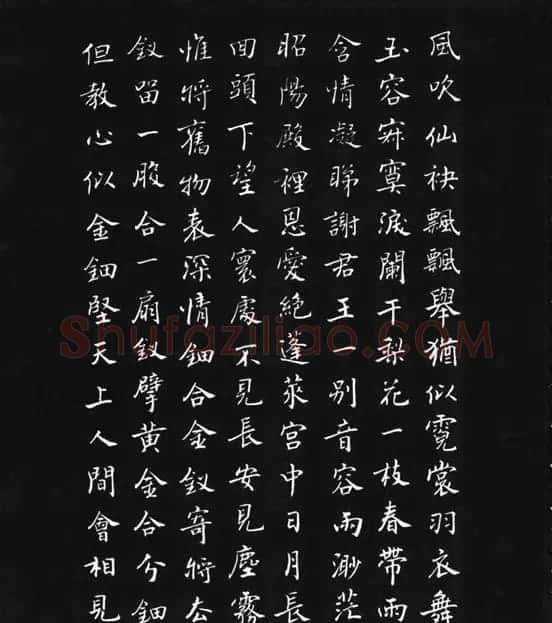 風吹仙袂飄飄舉猶似霓裳羽衣舞
玉容寂寞淚闌干梨花一枝春帶雨
含情凝睇謝君王一別音容兩渺茫
昭陽殿裡恩愛絕蓬萊宮中日月長
回頭下望人寰處不見長安見塵霧
惟將舊物表深情鈿合金釵寄將去
釵留一股合一扇釵擘黃金合分鈿
但教心似金鈿堅天上人間會相見
Shufaziliao.COM